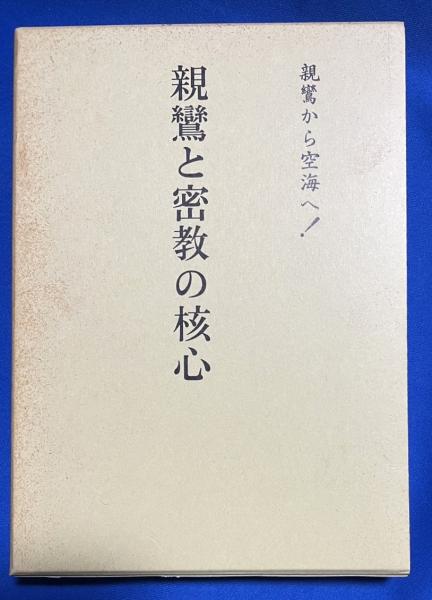 親鸞から空海へ!
親鸞と密教の核心